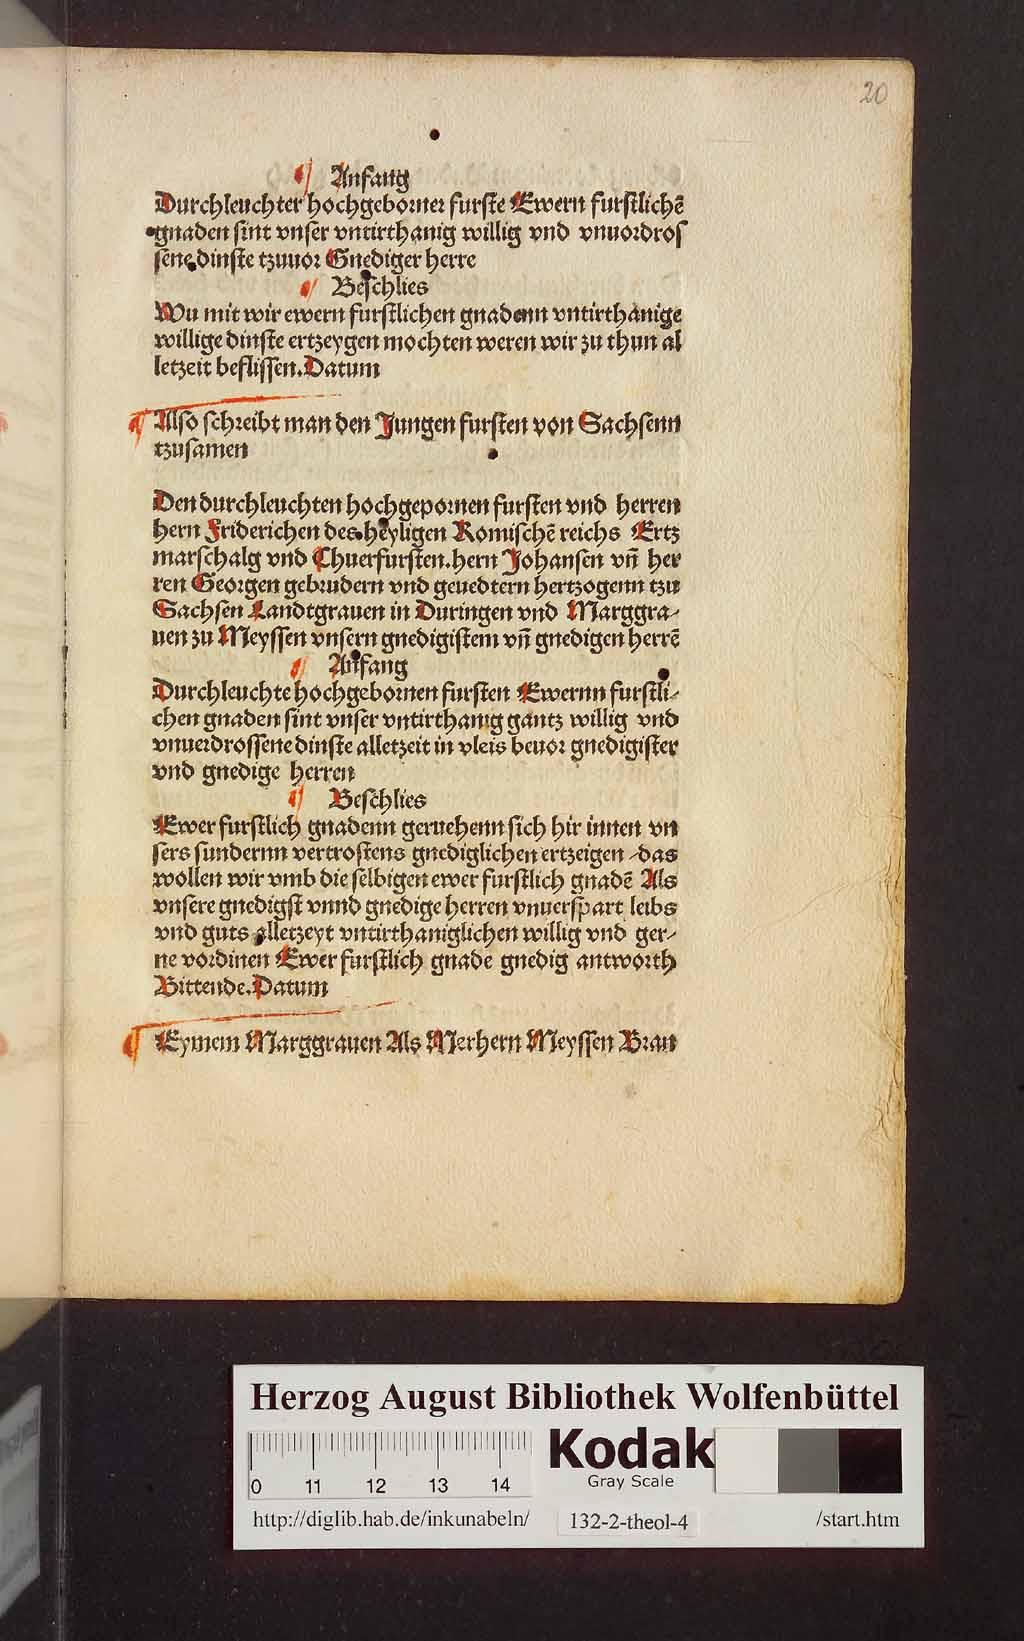 20
Anfang
Durchleuchter hochgeborner furste Ewern furstlichē
gnaden sint vnser vntirthanig willig vnd vnuordros
sene dinste tzuuor Gnediger herre
Beschlies
Wu mit wir ewern furstlichen gnadenn vntirthanige
willige dinste ertzeygen mochten weren wir zu thun al
letzeit beflissen. Datum
Also schreibt man den Jungen fursten von Sachsenn
tzusamen
Den durchleuchten hochgepornen fursten vnd herren
hern Friderichen des heyligen Romischē reichs Ertz
marschalg vnd Chuerfursten. hern Johansen vn̄ her
ren Georgen gebrudern vnd geuedtern hertzogenn tzu
Sachsen Landtgrauen in Duringen vnd Marggra-
uen zu Meyssen vnsern gnedigistem vn̄ gnedigen herrē
Anfang
Durchleuchte hochgebornen fursten Ewernn furstli-
chen gnaden sint vnser vntirthanig gantz willig vnd
vnuerdrossene dinste alletzeit in vleis beuor gnedigister
vnd gnedige herren
Beschlies
Ewer furstlich gnadenn geruehenn sich hir innen vn
sers sundernn vertrostens gnediglichen ertzeigen -das
wollen wir vmb die selbigen ewer furstlich gnadē Als
vnsere gnedigst vnnd gnedige herren vnuerspart leibs
vnd guts alletzeyt vntirthaniglichen willig vnd ger-
ne vordinen Ewer furstlich gnade gnedig antworth
Bittende. Datum
Eynem Marggrauen Als Merhern Meyssen Bran
Herzog August Bibliothek Wolfenbüttel
Kodak
Gray Scale
0 11 12 13 14
http://diglib.hab.de/inkunabeln/ 132-2-theol-4 /start.htm